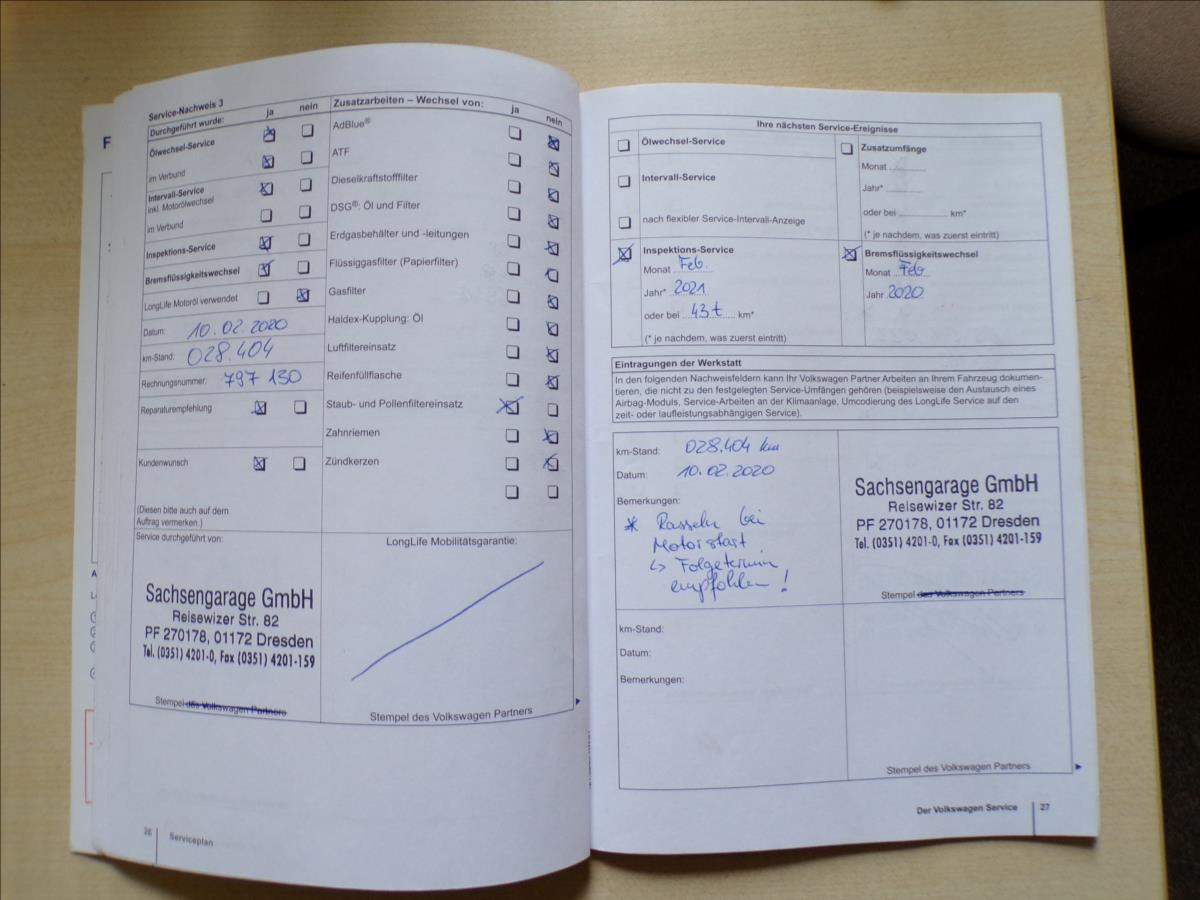 Service-Nachweis 3
Durchgeführt wurde: ja nein
Ölwechsel-Service
im Verbund
Intervall-Service
inkl. Motorölwechsel
im Verbund
Inspektions-Service
Bremsflüssigkeitswechsel
LongLife Motoröl verwendet
Datum: 10.02.2020
km-Stand: 028.404
Rechnungsnummer: 797 130
Reparaturempfehlung
Kundenwunsch
(Diesen bitte auch auf dem
Auftrag vermerken.)
Zusatzarbeiten – Wechsel von: ja nein
AdBlue®
ATF
Dieselkraftstofffilter
DSG®: Öl und Filter
Erdgasbehälter und -leitungen
Flüssiggasfilter (Papierfilter)
Gasfilter
Haldex-Kupplung: Öl
Luftfiltereinsatz
Reifenfüllflasche
Staub- und Pollenfiltereinsatz
Zahnriemen
Zündkerzen
Service durchgeführt von:
Sachsengarage GmbH
Reisewizer Str. 82
PF 270178, 01172 Dresden
Tel. (0351) 4201-0, Fax (0351) 4201-159
Stempel des Volkswagen Partners
LongLife Mobilitätsgarantie:
Stempel des Volkswagen Partners
26 Serviceplan
Ihre nächsten Service-Ereignisse
Ölwechsel-Service
Intervall-Service
nach flexibler Service-Intervall-Anzeige
Zusatzumfänge
Monat
Jahr*
oder bei km*
(* je nachdem, was zuerst eintritt)
Inspektions-Service
Monat Feb.
Jahr* 2021
oder bei 43t km*
(* je nachdem, was zuerst eintritt)
Bremsflüssigkeitswechsel
Monat Feb
Jahr 2020
Eintragungen der Werkstatt
In den folgenden Nachweisfeldern kann Ihr Volkswagen Partner Arbeiten an Ihrem Fahrzeug dokumen-
tieren, die nicht zu den festgelegten Service-Umfängen gehören (beispielsweise den Austausch eines
Airbag-Moduls, Service-Arbeiten an der Klimaanlage, Umcodierung des LongLife Service auf den
zeit- oder laufleistungsabhängigen Service).
km-Stand: 028.404 km
Datum: 10.02.2020
Bemerkungen:
* Rasseln bei
Motorstart
↳ Folgetermin
empfohlen!
Sachsengarage GmbH
Reisewizer Str. 82
PF 270178, 01172 Dresden
Tel. (0351) 4201-0, Fax (0351) 4201-159
Stempel des Volkswagen Partners
km-Stand:
Datum:
Bemerkungen:
Stempel des Volkswagen Partners
Der Volkswagen Service 27